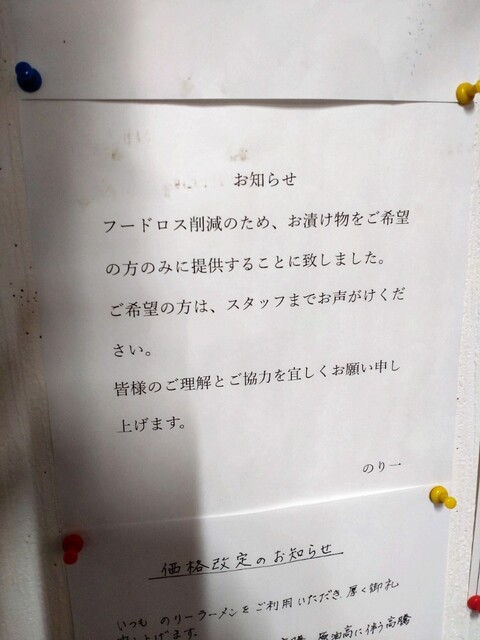 お知らせ
フードロス削減のため、お漬け物をご希望
の方のみに提供することに致しました。
ご希望の方は、スタッフまでお声がけくだ
さい。
皆様のご理解とご協力を宜しくお願い申し
上げます。
のり一
価格改定のお知らせ
いつも のり一ラーメンをご利用いただき、厚く御礼
し上げます。
原油高に伴う高騰